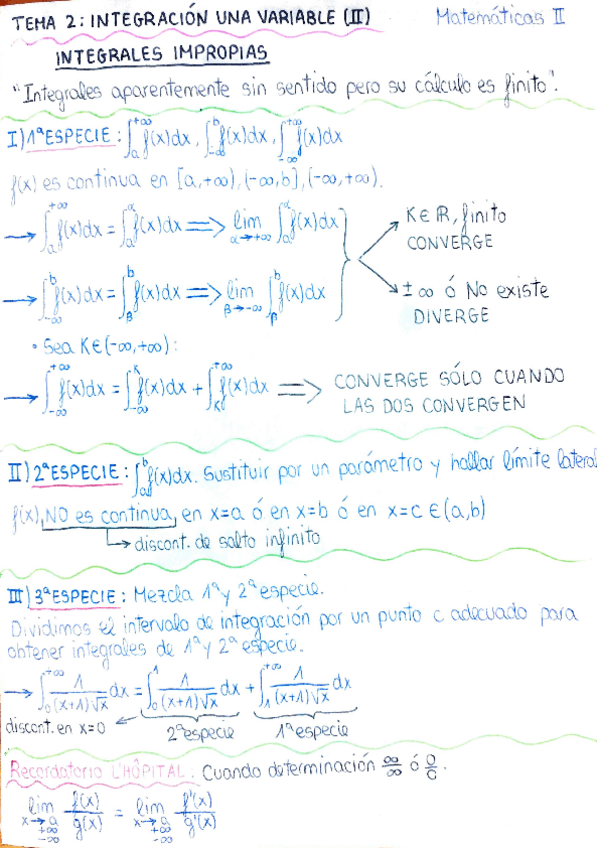 TEMA 2: INTEGRACIÓN UNA VARIABLE (II) Matemáticas II
INTEGRALES IMPROPIAS
"Integrales aparentemente sin sentido pero su cálculo es finito".
I) 1ª ESPECIE: ∫_a^{+∞} f(x)dx, ∫_{-∞}^b f(x)dx, ∫_{-∞}^{+∞} f(x)dx
f(x) es continua en [a,+∞), (-∞,b], (-∞,+∞).
→ ∫_a^{+∞} f(x)dx = ∫_a^α f(x)dx ⟹ lim_{α→+∞} ∫_a^α f(x)dx
K∈ℝ, finito
CONVERGE
→ ∫_{-∞}^b f(x)dx = ∫_β^b f(x)dx ⟹ lim_{β→-∞} ∫_β^b f(x)dx
±∞ ó No existe
DIVERGE
• Sea K∈(-∞,+∞):
→ ∫_{-∞}^{+∞} f(x)dx = ∫_{-∞}^K f(x)dx + ∫_K^{+∞} f(x)dx ⟹ CONVERGE SÓLO CUANDO
LAS DOS CONVERGEN
II) 2ª ESPECIE: ∫_a^b f(x)dx. Sustituir por un parámetro y hallar límite lateral
f(x), NO es continua, en x=a ó en x=b ó en x=c ∈(a,b)
↳ discont. de salto infinito
III) 3ª ESPECIE: Mezcla 1ª y 2ª especie.
Dividimos el intervalo de integración por un punto c adecuado para
obtener integrales de 1ª y 2ª especie.
→ ∫_0^{+∞} 1/((x+1)√x) dx = ∫_0^1 1/((x+1)√x) dx + ∫_1^{+∞} 1/((x+1)√x) dx
discont. en x=0 2ª especie 1ª especie
Recordatorio L'HÔPITAL: Cuando determinación ∞/∞ ó 0/0.
lim_{x→a, +∞, -∞} f(x)/g(x) = lim_{x→a, +∞, -∞} f'(x)/g'(x)